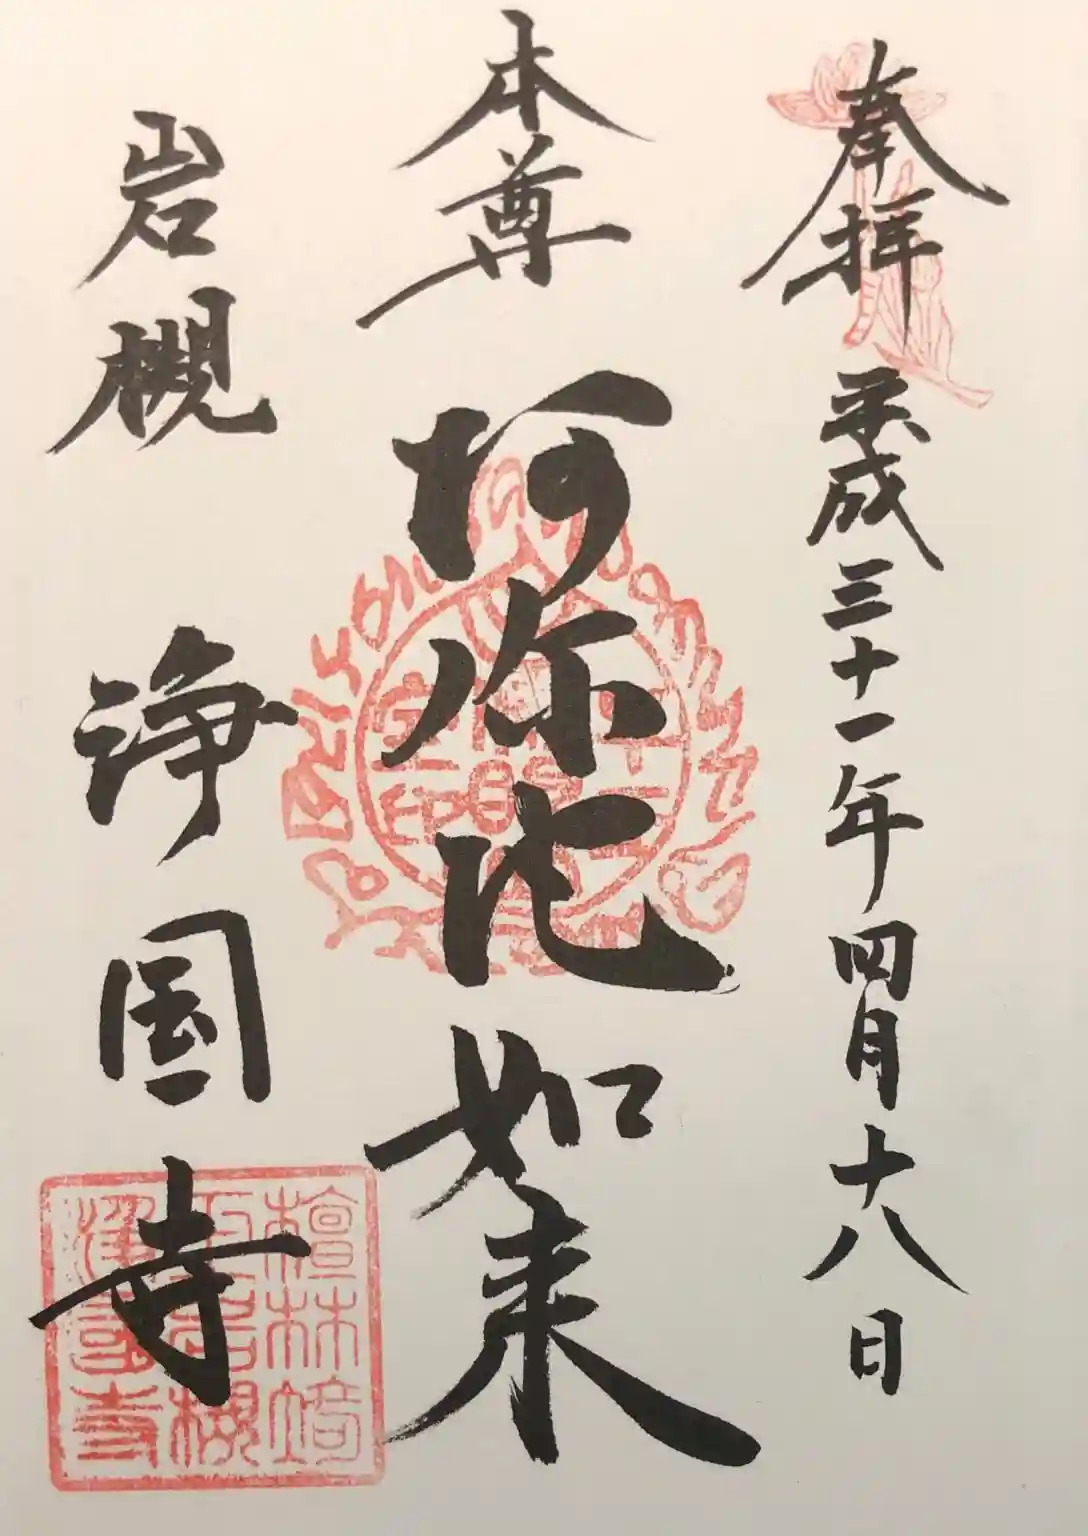 奉拝
平成三十一年四月十八日
本尊
阿弥陀如来
岩槻
浄国寺